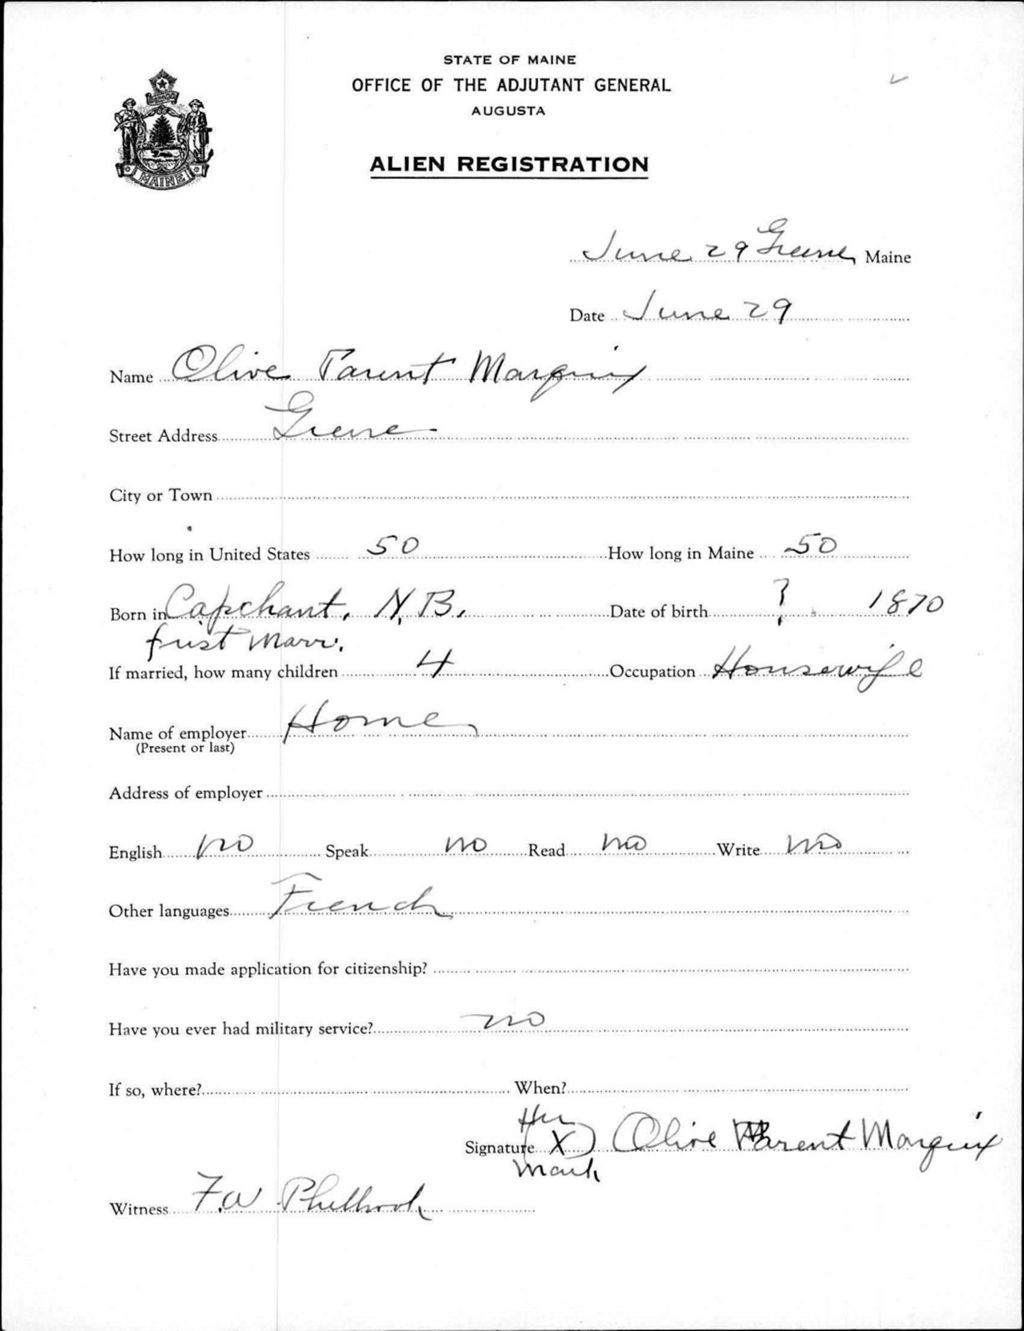 STATE OF MAINE
OFFICE OF THE ADJUTANT GENERAL
AUGUSTA
ALIEN REGISTRATION
MAINE
June 29 Greene, Maine
Date June 29
Name Olive Parent Marquix
Street Address Greene
City or Town
How long in United States 50 How long in Maine 50
Born in Capchant, N.B. Date of birth ? 1870
first Marr.
If married, how many children 4 Occupation Housewife
Name of employer Home
(Present or last)
Address of employer
English no Speak no Read no Write no
Other languages French
Have you made application for citizenship?
Have you ever had military service? no
If so, where? When?
Her
Signature (X) Olive Parent Marquix
Mark
Witness F.W Philbrook